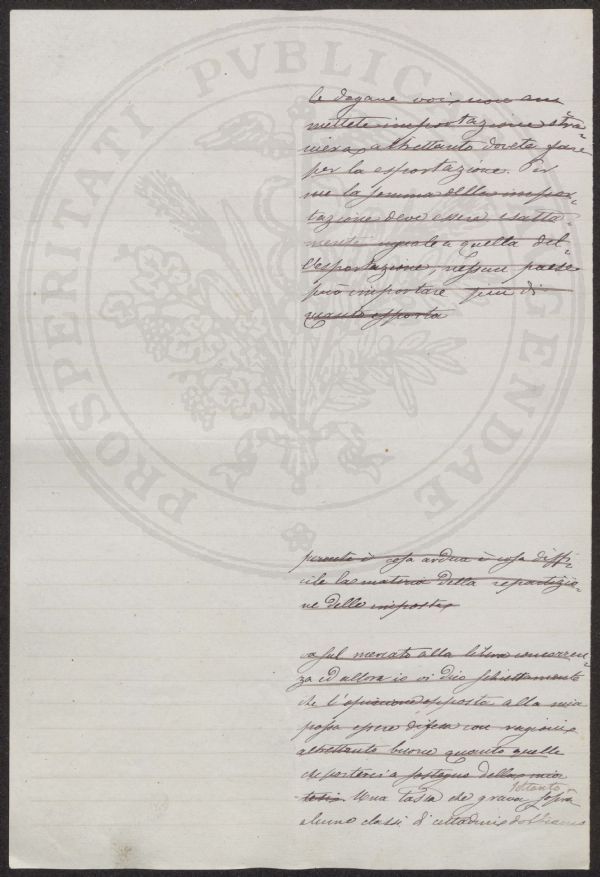 PROSPERITATI PVBLICAE AVGENDAE
le dogane voi, non am
mettete importazione stra=
niera, altrettanto dovete fare
per la esportazione. Per
me la somma della impor=
tazione deve essere esatta=
mente uguale a quella del=
l'esportazione, nessun paese
può importare più di
quanto
è cosa ardua è cosa diffi=
cile la materia della repartizio=
ne delle imposte
sul mercato alla libera concorren=
za ed allora io vi dico schiettamente
che l'opinione opposta alla mia
possa essere difesa con ragioni
altrettanto buone quanto quelle
a sostegno della mia
tesi. Una tassa che grava soltanto sopra
alcune classi di cittadini